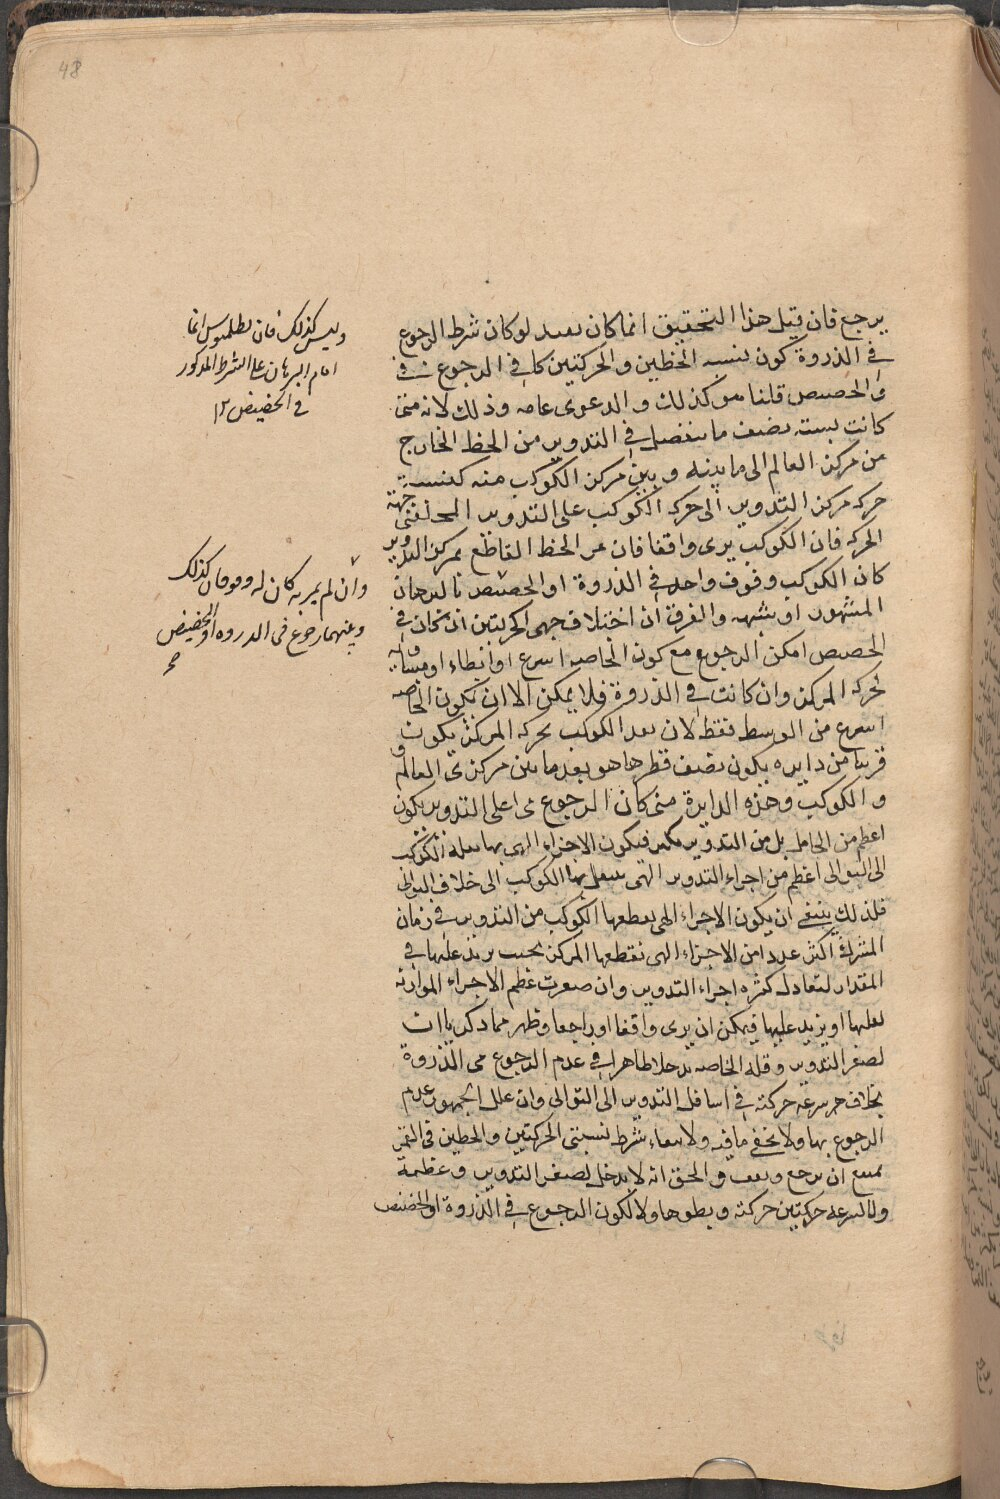 48
يرجع فان قيل هذا التحقيق انما كان يفيد لو كان شرط الرجوع
في الذروة كون نسبة الخطين والحركتين كما في الرجوع في
الحضيض قلنا هو كذلك والدعوى عامة وذلك لانه متى
كانت نسبة نصف ما ينفصل في التدوير من الخط الخارج
من مركز العالم الى ما بينه وبين مركز الكوكب منه كنسبة
حركة مركز التدوير الى حركة الكوكب على التدوير المختلفتي جهة
الحركة فان الكوكب يرى واقفا فان مر الخط القاطع بمركز التدوير
كان الكوكب وقوف واحد في الذروة او الحضيض بالبرهان
المشهور او بشبهه والفرق ان اختلاف جهتي الحركتين ان كان في
الحضيض امكن الرجوع مع كون الخاصة اسرع او ابطاء او مساوية
لحركة المركز وان كانت في الذروة فلا يمكن الا ان تكون الخاصة
اسرع من الوسط فقط لان بعد الكوكب بحركة المركز يكون
قريبا من دايرة يكون نصف قطرها هو بعد ما بين مركزي العالم
و الكوكب وهذه الدايرة متى كان الرجوع في اعلى التدوير يكون
اعظم من الحامل بل من التدوير بكثير فيكون الاجزاء التي بها ينتقل الكوكب
الى التوالى اعظم من اجزاء التدوير التي ينتقل بها الكوكب الى خلاف التوالى
فلذلك ينبغى ان يكون الاجزاء التي يقطعها الكوكب من التدوير في زمان
المشترك اكثر عددا من الاجزاء التي تقطعها المركز بحيث يزيد عليها في
المقدار لتعادل كثرة اجزاء التدوير وان صغرت عظم الاجزاء الموازية
لعلها او يزيد عليها فيمكن ان يرى واقفا او راجعا وظهر مما ذكرنا ان
لصغر التدوير وقلة الخاصة مدخلا ظاهرا في عدم الرجوع في الذروة
بخلاف سرعة حركته في اسافل التدوير الى التوالى وان علل الجمهور عدم
الرجوع بها ولا يخفى ما فيه ولانتفاء شرط نسبتي الحركتين والخطين في القمر
يمتنع ان يرجع ويقف والحق انه لا مدخل لصغر التدوير وعظمه
ولا لسرعة حركتين حركته وبطوها ولا لكون الرجوع في الذروة او الحضيض
وليس كذلك فان بطلميوس انما
اقام البرهان على الشرط المذكور
في الحضيض ١٢
وان لم يمر به كان له وقوفان كذلك
وبينهما رجوع في الذروه او الحضيض
صح